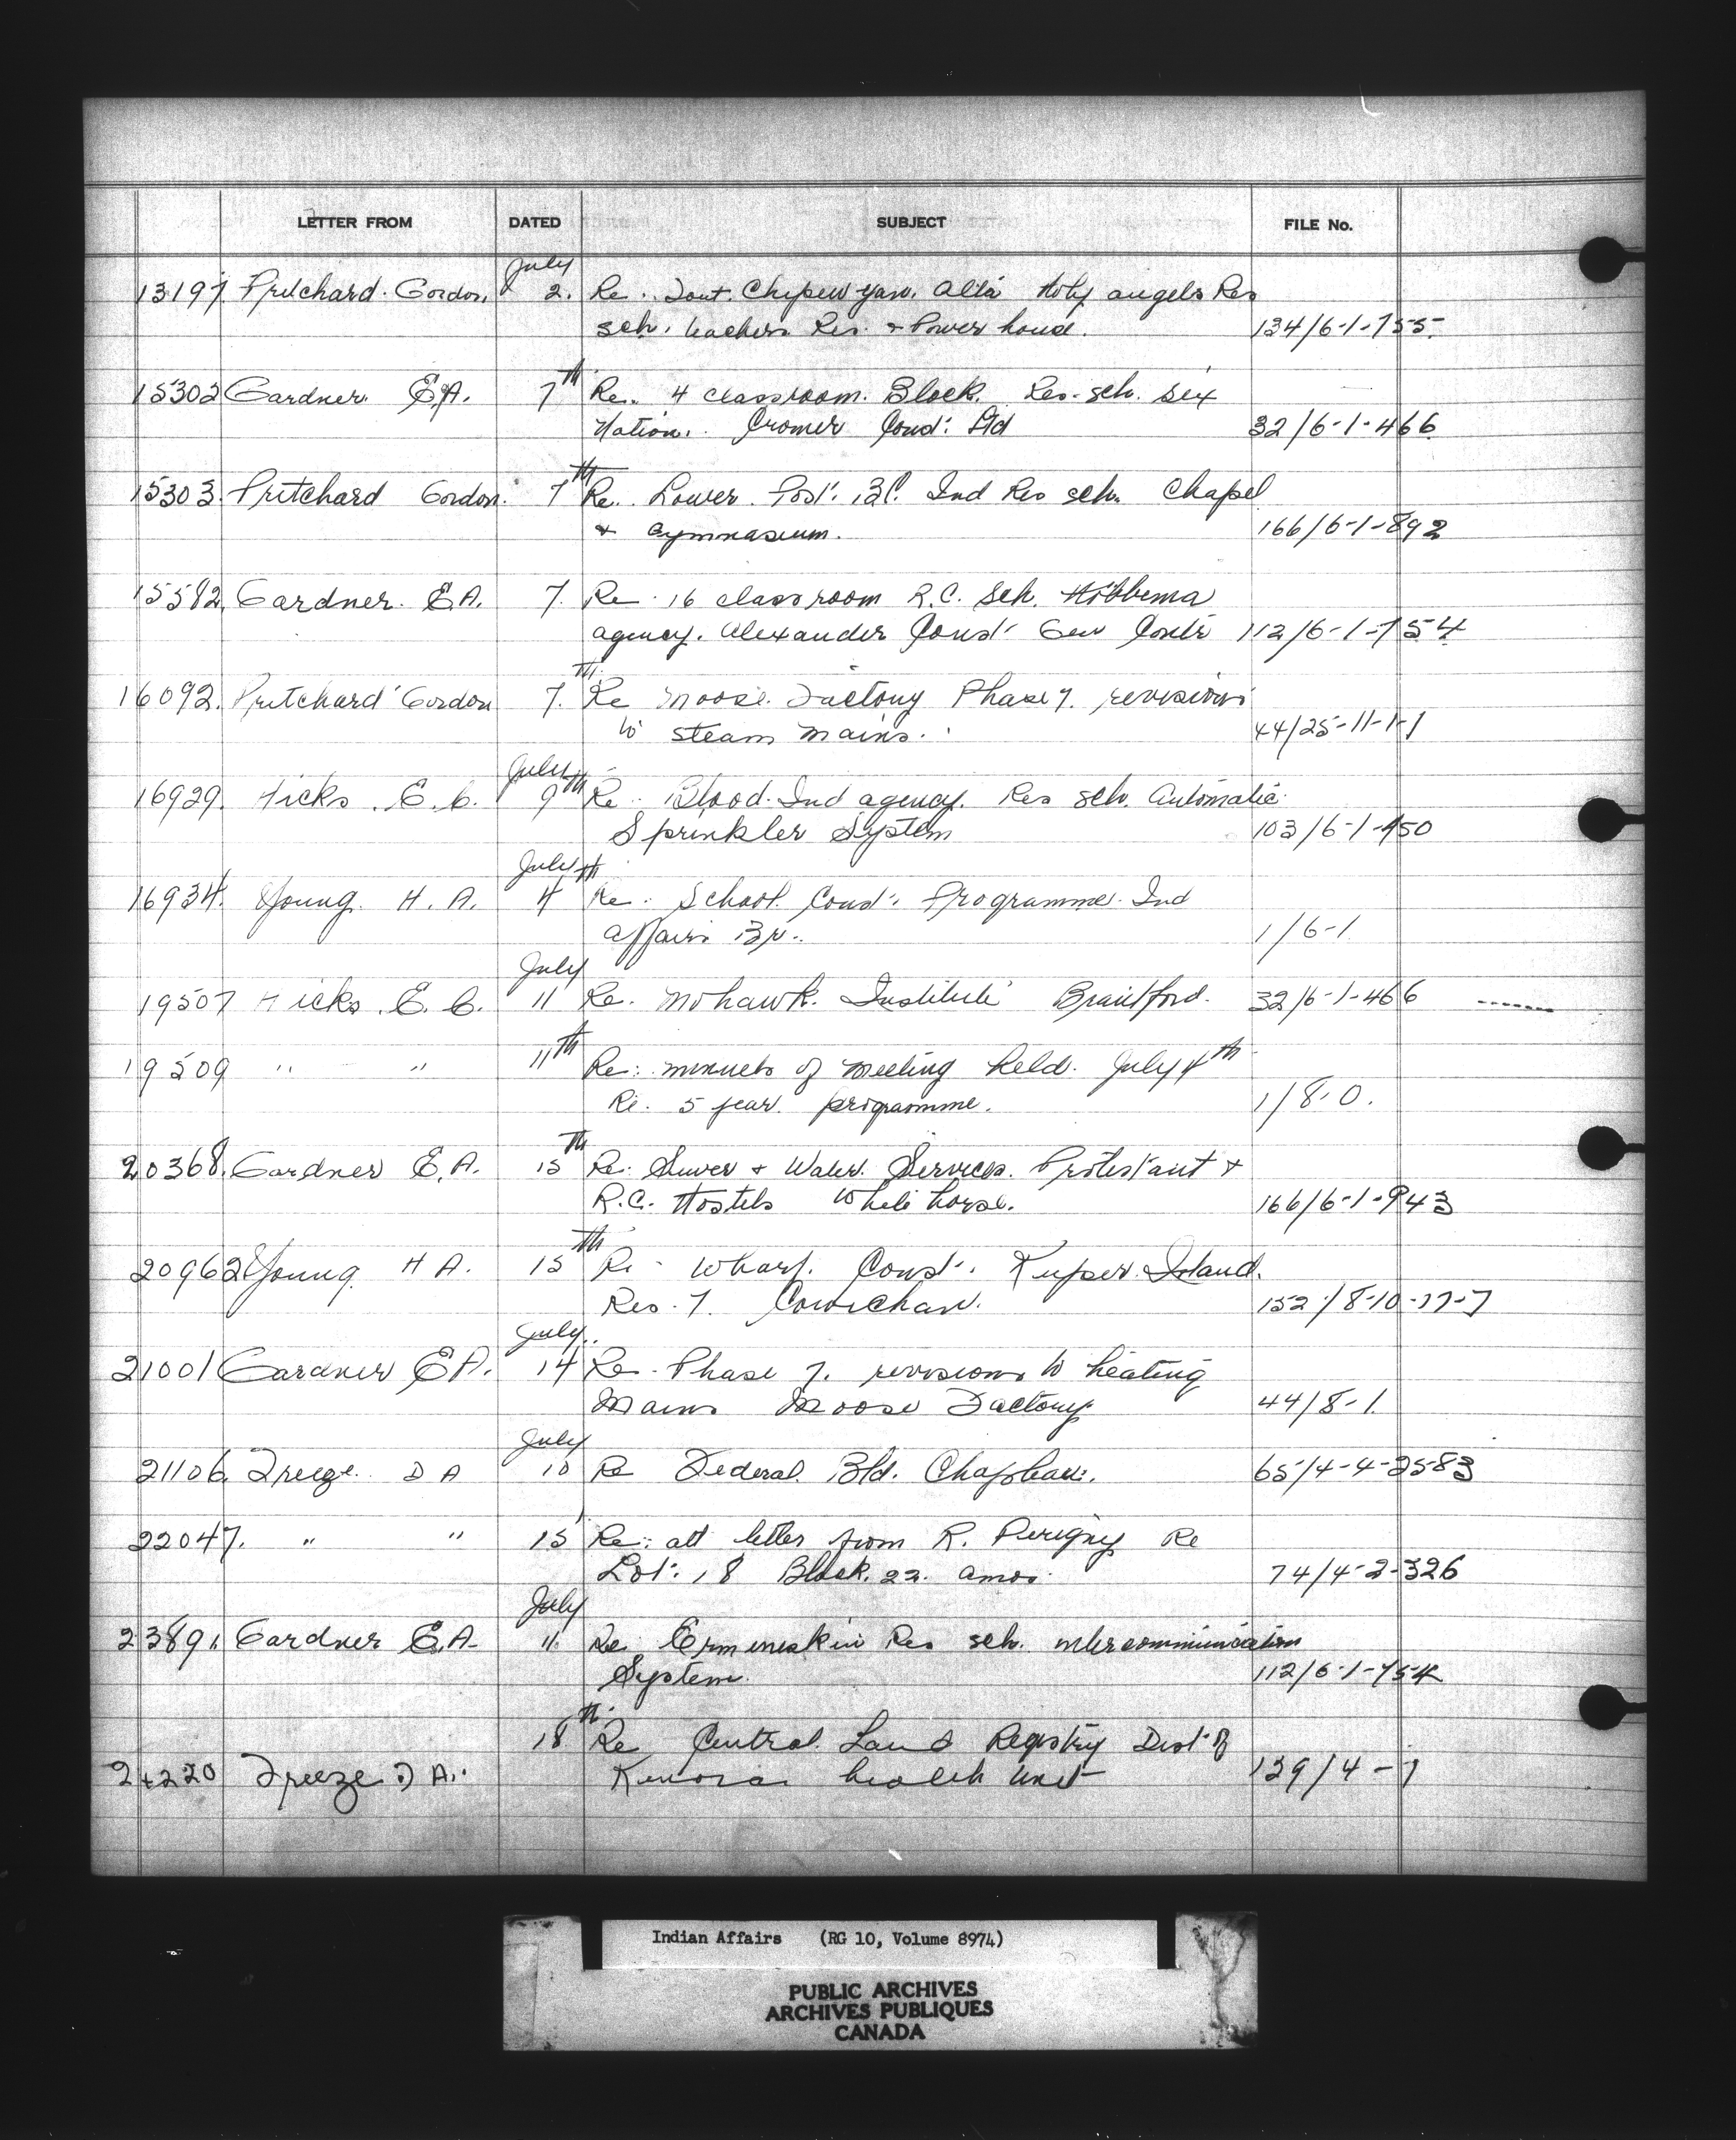 LETTER FROM DATED SUBJECT FILE No.
July
13197 Pritchard. Gordon. 2. Re. Font. Chipewyan. Alta Holy angels Res
sch. teachers Res. & Power house. 134/6-1-755
15302 Gardner E.A. 7th Re. 4 classroom. Block. Res. sch. Six
Nation. Cromer Const. Ltd 32/6-1-466
15303. Pritchard Gordon. 7th Re. Lower. Post. B.C. Ind Res sch. Chapel
& Gymnasium. 166/6-1-892
15582. Gardner. E.A. 7. Re. 16 classroom R.C. Sch. Hobbema
agency. Alexander Const. Gen Contr 112/6-1-754
16092. Pritchard Gordon 7th. Re Moose. Factory Phase 7. revisions
to steam mains. 44/25-11-1-1
July
16929. Hicks. E. C. 9th Re. Blood. Ind agency. Res sch. Automatic
Sprinkler System 103/6-1-450
July
16934. Young. H. A. 4th Re. School. Const. Programme. Ind
affairs Br. 1/6-1
July
19507 Hicks. E. C. 11 Re. Mohawk. Institute Brantford. 32/6-1-466
19509 " " 11th Re: minuets of meeting held. July 4th
Re. 5 year. programme. 1/8.0.
20368. Gardner E.A. 15th Re: Sewer & Water. Services. Protestant &
R.C. Hostels White horse. 166/6-1-943
20962 Young H A. 15th Re. Wharf. Const. Kuper. Island.
Res. 7. Cowichan. 152/8-10-17-7
July
21001 Gardner E A. 14 Re. Phase 7. revisions to heating
Mains Moose Factory 44/8-1.
July
21106. Freeze. D A 10 Re Federal. Bld. Chapleau. 65/4-4-2583
22047. " " 15 Re: att letter from R. Perigny Re
Lot. 18 Block. 22. Amos. 74/4-2-326
July
23891. Gardner E.A. 11. Re Ermineskin Res sch. intercommunication
System. 112/6-1-754
18th. Re Central. Land Registry Dist. of
24220 Freeze D A. Kenora health Unit 139/4-1
Indian Affairs (RG 10, Volume 8974)
PUBLIC ARCHIVES
ARCHIVES PUBLIQUES
CANADA